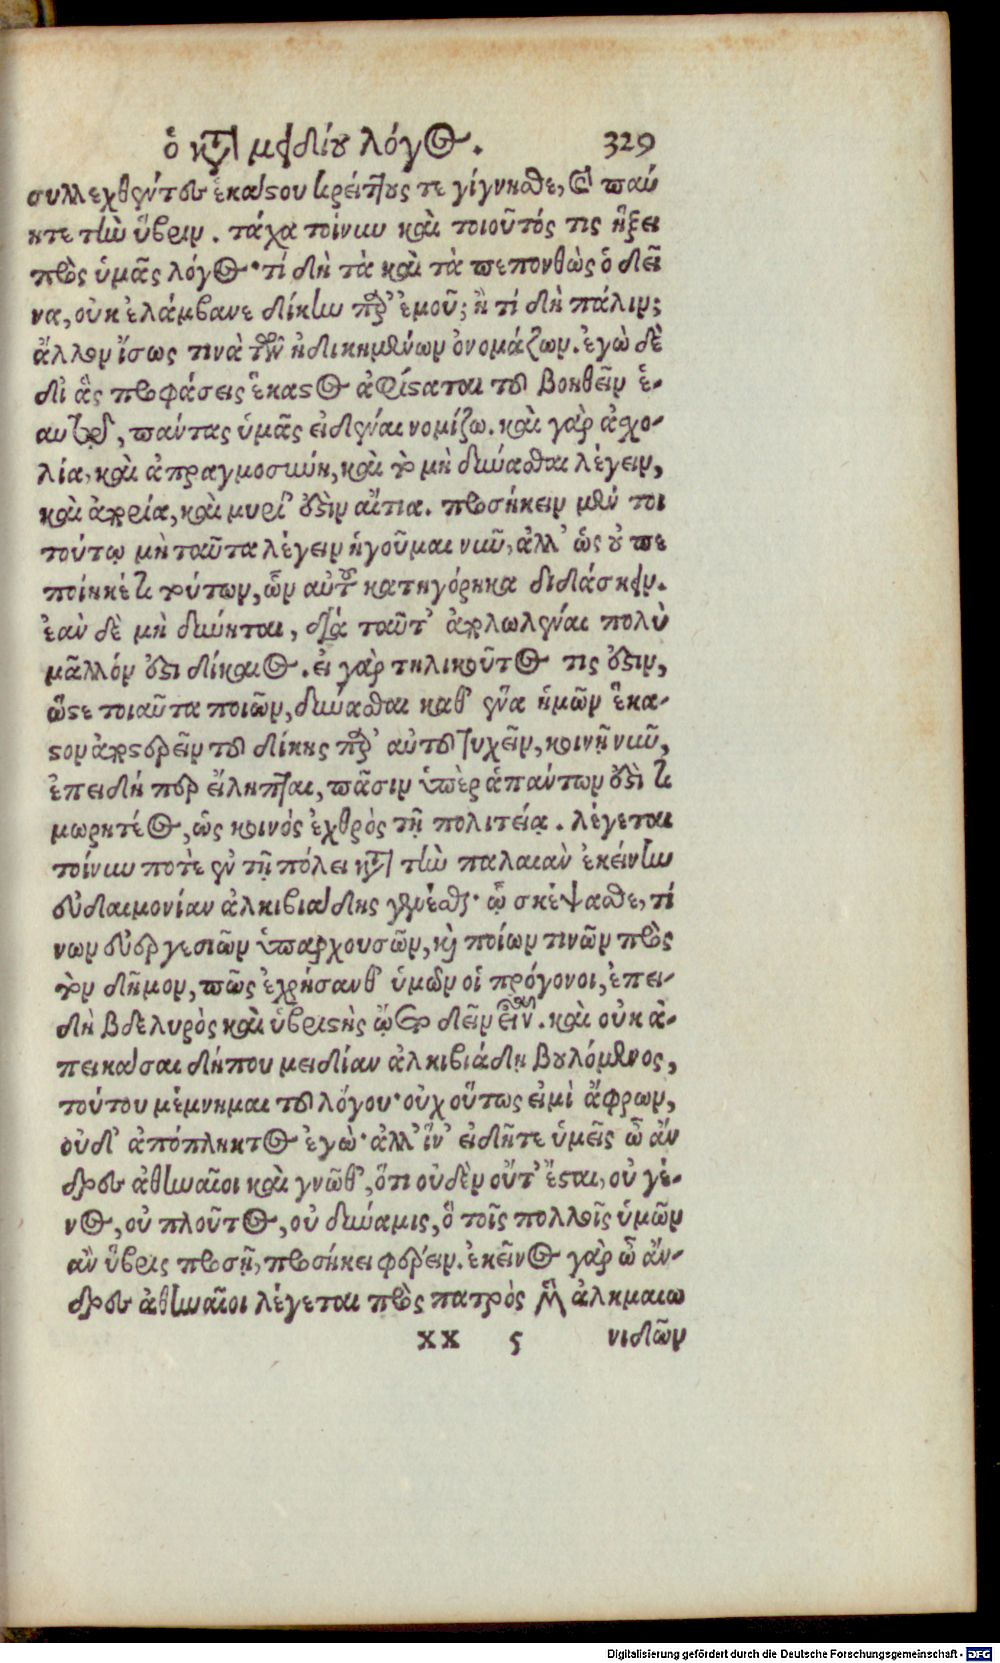 ὁ κατὰ μειδίου λόγος. 329
συλλεχθέντες ἑκάστου κρείττους τε γίγνησθε, καὶ παύ
ητε τὴν ὕβριν. τάχα τοίνυν καὶ τοιοῦτός τις ἥξει
πρὸς ὑμᾶς λόγος· τί δὴ τὰ καὶ τὰ πεπονθὼς ὁ δεῖ
να, οὐκ ἐλάμβανε δίκην παρ' ἐμοῦ; ἢ τί δὴ πάλιν;
ἄλλον ἴσως τινὰ τῶν ἠδικημένων ὀνομάζων. ἐγὼ δὲ
δι' ἃς προφάσεις ἕκαστος ἀφίσταται τοῦ βοηθεῖν ἑ-
αυτῷ, πάντας ὑμᾶς εἰδέναι νομίζω. καὶ γὰρ ἀσχο-
λία, καὶ ἀπραγμοσύνη, καὶ τὸ μὴ δύνασθαι λέγειν,
καὶ ἀπορία, καὶ μυρί' ἐστὶν αἴτια. προσήκειν μέν τοι
τούτῳ μὴ ταῦτα λέγειν ἡγοῦμαι νυνὶ, ἀλλ' ὡς οὐ πε
ποίηκέ τι τούτων, ὧν αὐτοῦ κατηγόρηκα διδάσκειν.
ἐὰν δὲ μὴ δύνηται, διὰ ταῦτ' ἀπολωλέναι πολὺ
μᾶλλόν ἐστι δίκαιος. εἰ γὰρ τηλικοῦτος τις ἐστιν,
ὥστε τοιαῦτα ποιῶν, δύνασθαι καθ' ἕνα ἡμῶν ἕκα-
στον ἀποστερεῖν τοῦ δίκης παρ' αὐτοῦ τυχεῖν, κοινῇ νυνὶ,
ἐπειδή περ εἴληπται, πᾶσιν ὑπὲρ ἁπάντων ἐστὶ τι
μωρητέος, ὡς κοινός ἐχθρὸς τῇ πολιτείᾳ. λέγεται
τοίνυν ποτὲ ἐν τῇ πόλει κατὰ τὴν παλαιὰν ἐκείνην
εὐδαιμονίαν ἀλκιβιάδης γενέσθαι· ᾧ σκέψασθε, τί
νων εὐεργεσιῶν ὑπαρχουσῶν, καὶ ποίων τινῶν πρὸς
τὸν δῆμον, πῶς ἐχρήσανθ' ὑμῶν οἱ πρόγονοι, ἐπει-
δὴ βδελυρὸς καὶ ὑβριστὴς ᾤετο δεῖν εἶναι. καὶ οὐκ ἀ-
πεικάσαι δήπου μειδίαν ἀλκιβιάδῃ βουλόμενος,
τούτου μέμνημαι τοῦ λόγου· οὐχ οὕτως εἰμὶ ἄφρων,
οὐδ' ἀπόπληκτος ἐγὼ· ἀλλ' ἵν' εἰδῆτε ὑμεῖς ὦ ἄν
δρες ἀθηναῖοι καὶ γνῶθ', ὅτι οὐδὲν οὔτ' ἔσται, οὐ γέ-
νος, οὐ πλοῦτος, οὐ δύναμις, ὃ τοῖς πολλοῖς ὑμῶν
ἂν ὕβρις προσῇ, προσήκει φέρειν. ἐκεῖνος γὰρ ὦ ἄν-
δρες ἀθηναῖοι λέγεται πρὸς πατρὸς μὲν ἀλκμαιω
XX 5 νιδῶν
Digitalisierung gefördert durch die Deutsche Forschungsgemeinschaft - DFG